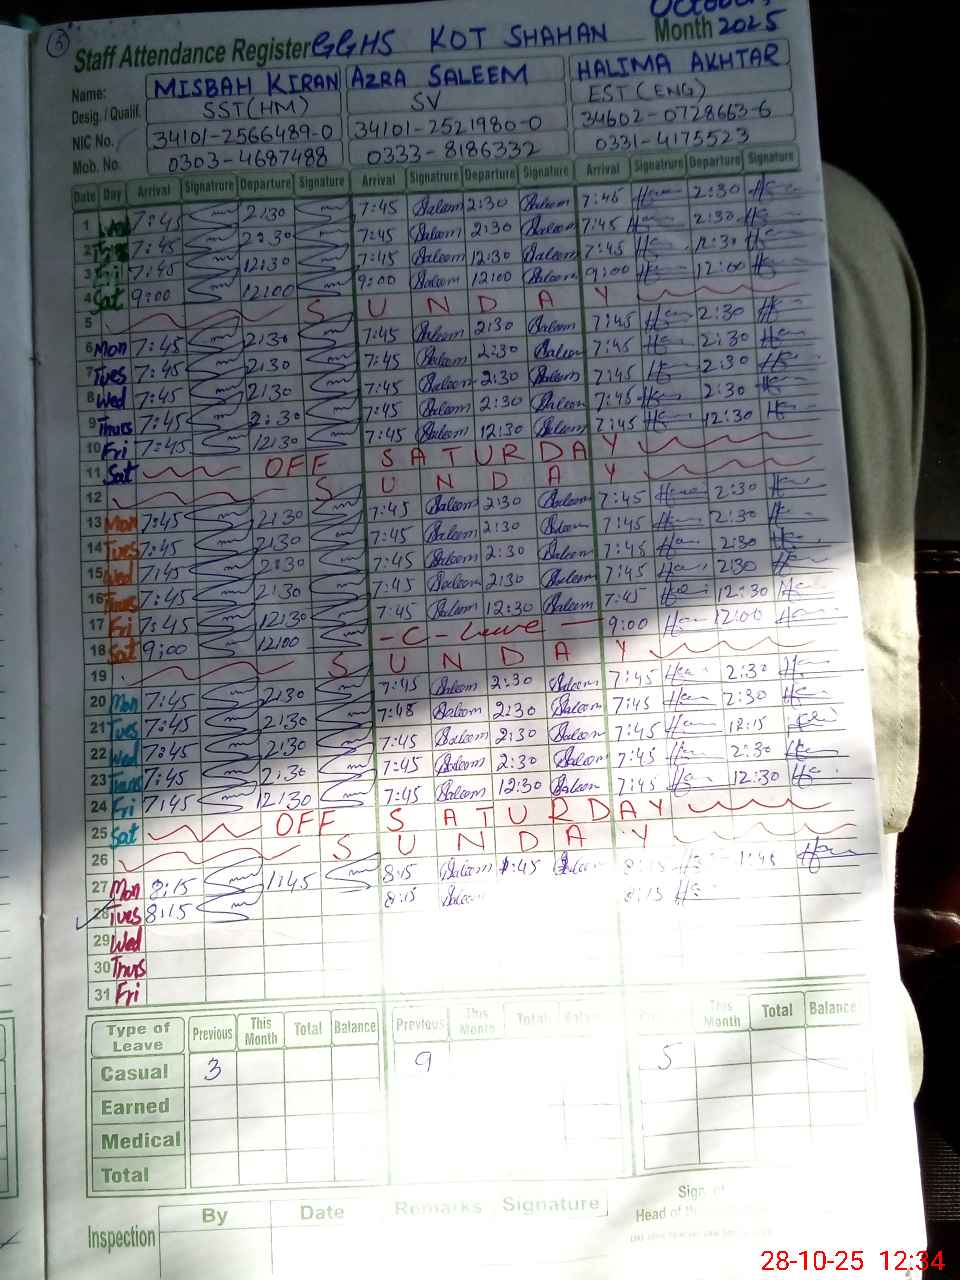 5
October,
Staff Attendance Register GGHS KOT SHAHAN Month 2025
Name: MISBAH KIRAN AZRA SALEEM HALIMA AKHTAR
Desig. / Qualif. SST(HM) SV EST (ENG)
NIC No. 34101-2566489-0 34101-2521980-0 34602-0728663-6
Mob. No. 0303-4687488 0333-8186332 0331-4175523
Date Day Arrival Signatrure Departure Signature Arrival Signatrure Departure Signature Arrival Signatrure Departure Signature
1 Wed 7:45 2:30 7:45 Saleem 2:30 Saleem 7:45 2:30
2 7:45 2:30 7:45 Saleem 2:30 Saleem 7:45 2:30
3 Fri 7:45 12:30 7:45 Saleem 12:30 Saleem 7:45 12:30
4 Sat 9:00 12:00 9:00 Saleem 12:00 Saleem 9:00 12:00
5 S U N D A Y
6 Mon 7:45 2:30 7:45 Saleem 2:30 Saleem 7:45 2:30
7 Tues 7:45 2:30 7:45 Saleem 2:30 Saleem 7:45 2:30
8 Wed 7:45 2:30 7:45 Saleem 2:30 Saleem 7:45 2:30
9 Thurs 7:45 2:30 7:45 Saleem 2:30 Saleem 7:45 2:30
10 Fri 7:45 12:30 7:45 Saleem 12:30 Saleem 7:45 12:30
11 Sat OFF SATURDAY
12 S U N D A Y
13 Mon 7:45 2:30 7:45 Saleem 2:30 Saleem 7:45 2:30
14 Tues 7:45 2:30 7:45 Saleem 2:30 Saleem 7:45 2:30
15 Wed 7:45 2:30 7:45 Saleem 2:30 Saleem 7:45 2:30
16 Thurs 7:45 2:30 7:45 Saleem 2:30 Saleem 7:45 2:30
17 Fri 7:45 12:30 7:45 Saleem 12:30 Saleem 7:45 12:30
18 Sat 9:00 12:00 -C-Leave- 9:00 12:00
19 S U N D A Y
20 Mon 7:45 2:30 7:45 Saleem 2:30 Saleem 7:45 2:30
21 Tues 7:45 2:30 7:48 Saleem 2:30 Saleem 7:45 2:30
22 Wed 7:45 2:30 7:45 Saleem 2:30 Saleem 7:45 12:15
23 Thurs 7:45 2:30 7:45 Saleem 2:30 Saleem 7:45 2:30
24 Fri 7:45 12:30 7:45 Saleem 12:30 Saleem 7:45 12:30
25 Sat OFF SATURDAY
26 S U N D A Y
27 Mon 8:15 1:45 8:15 Saleem 1:45 Saleem 8:15 1:45
28 Tues 8:15 8:15 Saleem 8:15
29 Wed
30 Thurs
31 Fri
Type of Leave Previous This Month Total Balance Previous This Month Total Balance This Month Total Balance
Casual 3 9 5
Earned
Medical
Total
Inspection By Date Remarks Signature
Sign. of
Head of
28-10-25 12:34